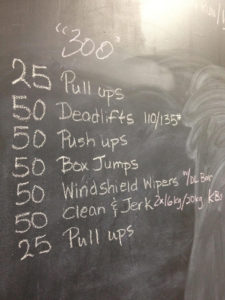 "300"
25 Pull ups
50 Deadlifts 110/135#
50 Push ups
50 Box Jumps
50 Windshield Wipers w/DL Bar
50 Clean & Jerk 2x16kg/20kg KBs
25 Pull ups